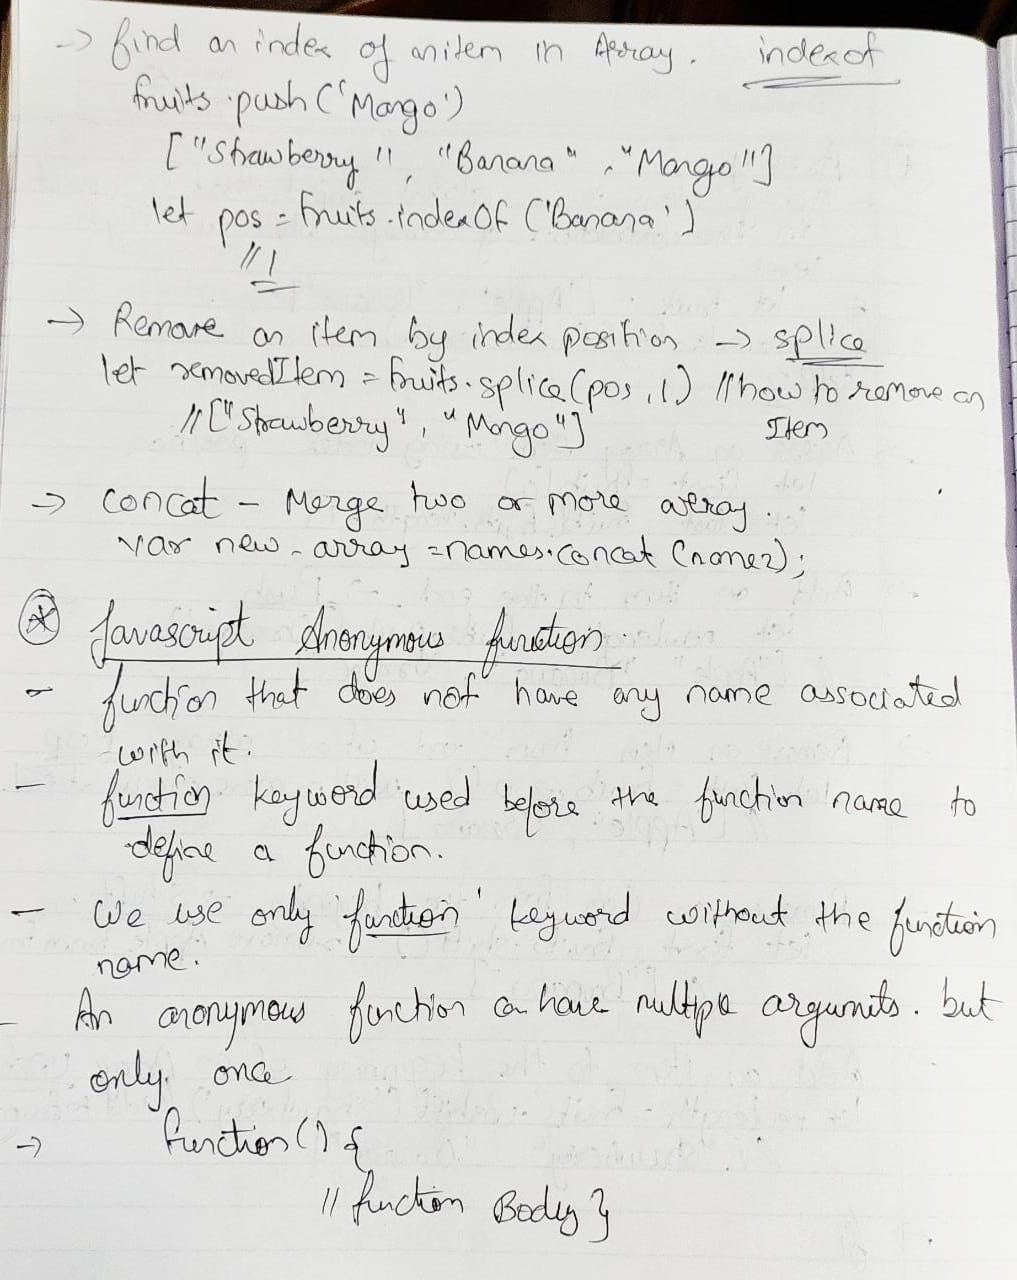 -> find an index of an item in Array. indexof
fruits.push('Mango')
["Strawberry", "Banana", "Mango"]
let pos = fruits.indexOf('Banana')
//1
-> Remove an item by index position -> splice
let removedItem = fruits.splice(pos,1) //how to remove an
Item
//["Strawberry", "Mango"]
-> concat - Merge two or more array.
var new-array = names.concat(name2);
* Javascript Anonymous function.
- function that does not have any name associated
with it.
- function keyword used before the function name to
define a function.
- We use only 'function' keyword without the function
name.
- An anonymous function can have multiple arguments. but
only once
-> function() {
// function Body }